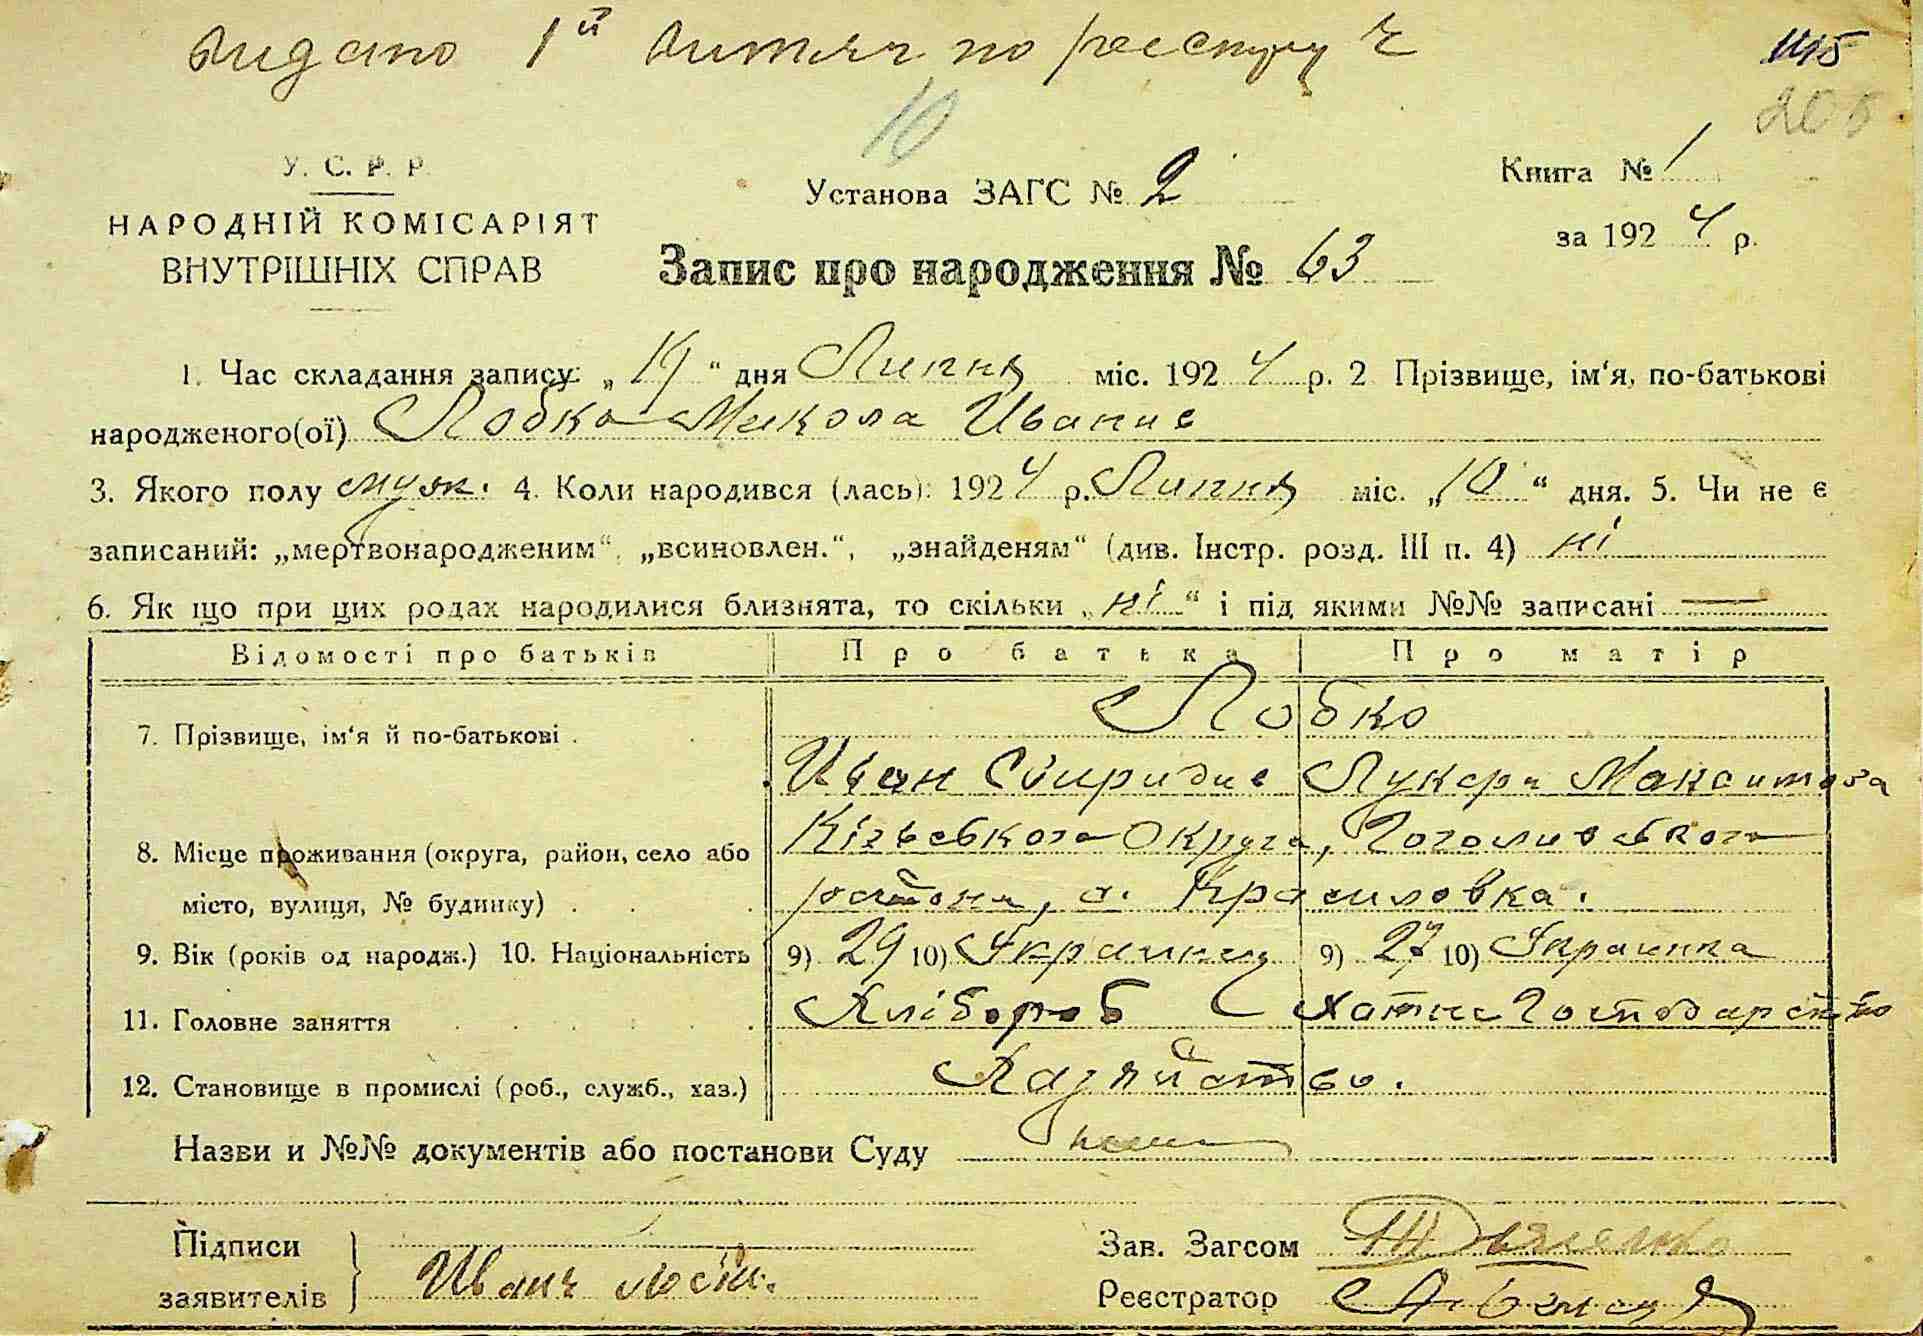 видано 1й витяг по реєстру ч
1115
10
206
У. С. Р. Р.
НАРОДНІЙ КОМІСАРІЯТ
ВНУТРІШНІХ СПРАВ
Установа ЗАГС № 2
Книга № 1
за 1924 р.
Запис про народження № 63
1. Час складання запису: „19“ дня Липня міс. 1924 р. 2 Прізвище, ім'я, по-батькові
народженого(ої) Лобко Микола Иванів
3. Якого полу муж. 4. Коли народився (лась): 1924 р. Липня міс. „10“ дня. 5. Чи не є
записаний: „мертвонародженим“, „всиновлен.“, „знайденям“ (див. Інстр. розд. III п. 4) ні
6. Як що при цих родах народилися близнята, то скільки „ні“ і під якими №№ записані —
Відомості про батьків Про батька Про матір
7. Прізвище, ім'я й по-батькові . Лобко
Иван Свиридив Лукеря Максимова
8. Місце проживання (округа, район, село або Київського Округа, Гоголивского
місто, вулиця, № будинку) . района, с. Красиловка.
9. Вік (років од народж.) 10. Національність 9) 29 10) Українец 9) 27 10) Українка
11. Головне заняття Хлібороб Хатнє Господарство
12. Становище в промислі (роб., служб., хаз.) Хазяйство.
Назви и №№ документів або постанови Суду
Підписи
заявителів Иван
Зав. Загсом
Реєстратор